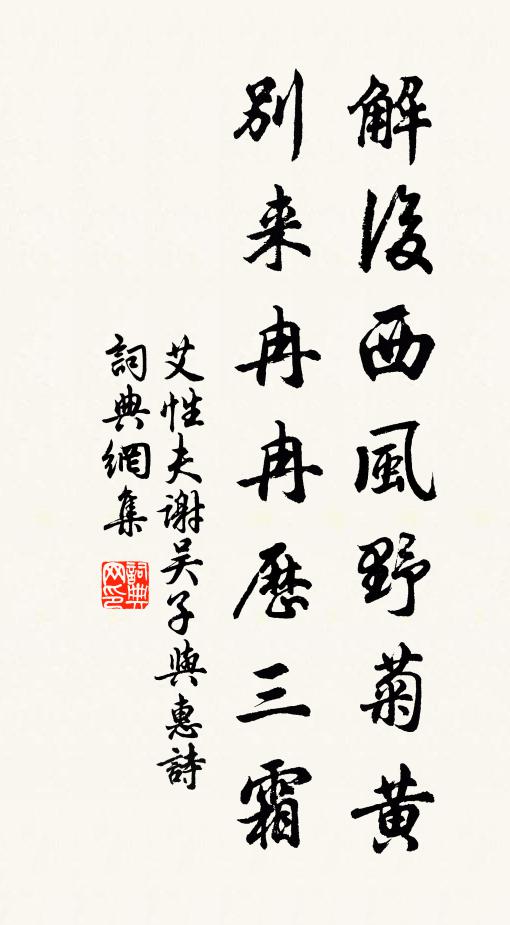 解後西風野菊黄
別来冉冉歷三霜
艾性夫謝吴子與惠詩
詞典網集
詞典
网印